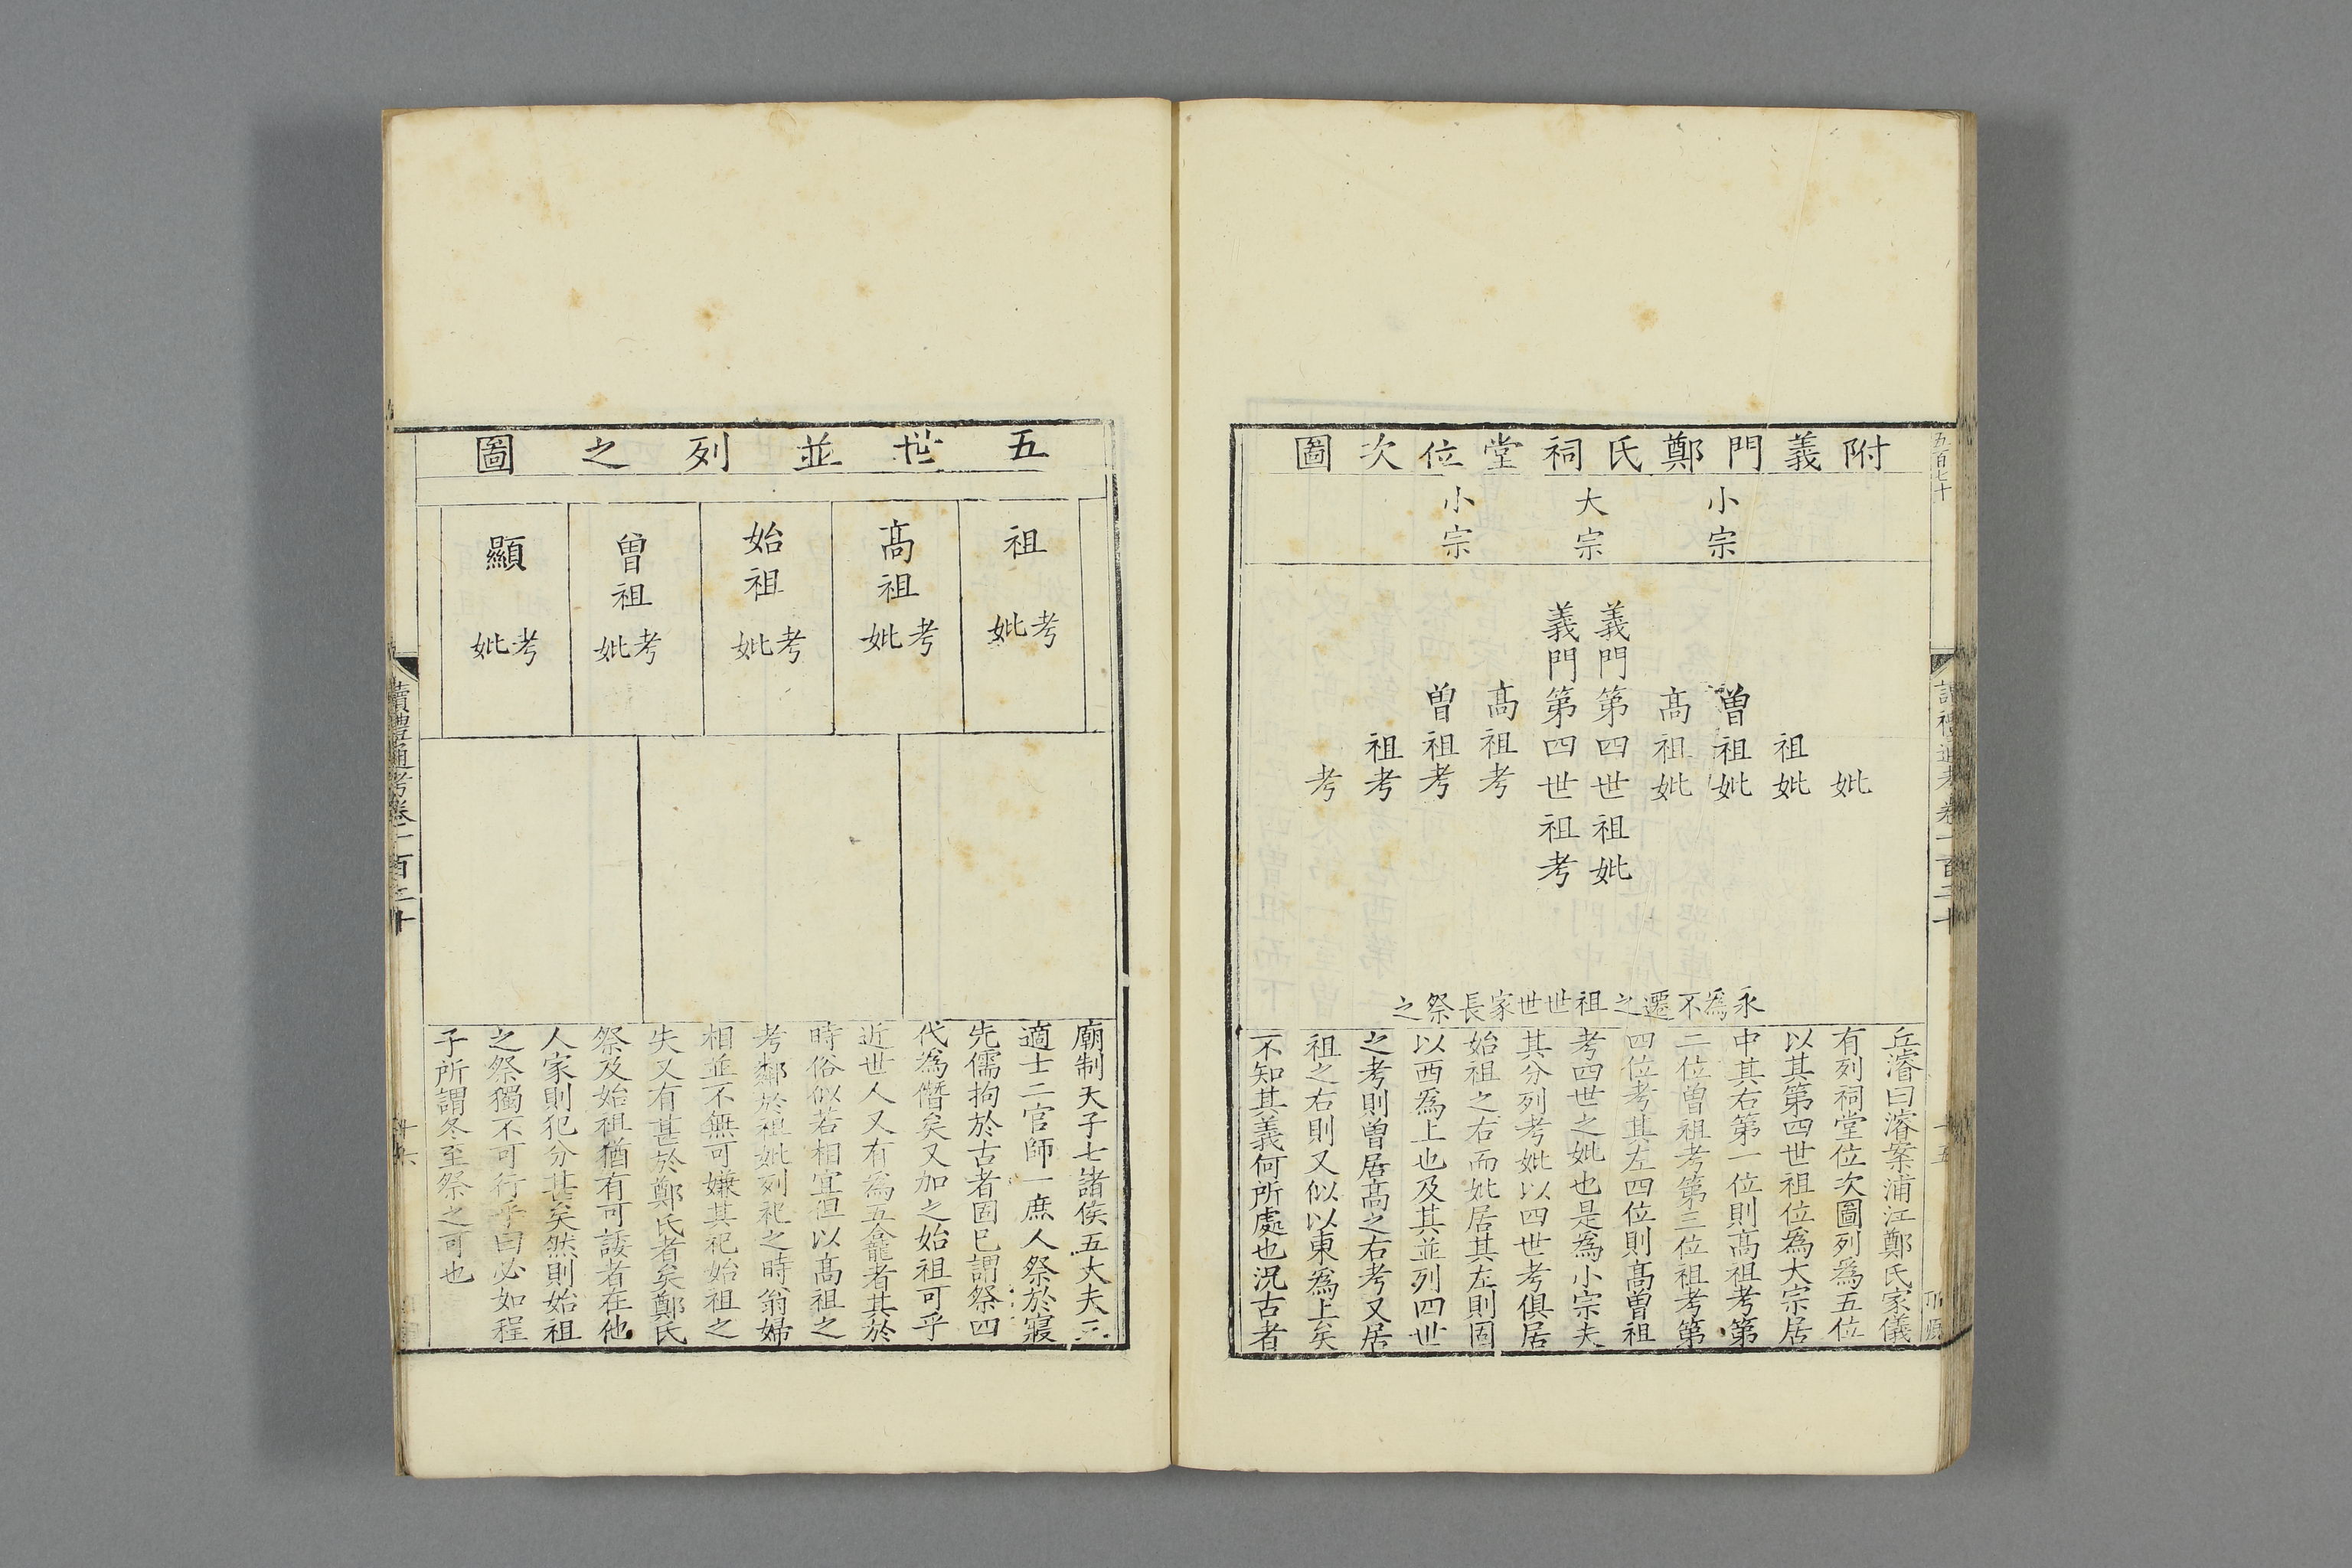 附義門鄭氏祠堂位次圖
小宗
大宗
小宗
妣
祖妣
曽祖妣
髙祖妣
義門第四世祖妣
義門第四世祖考
髙祖考
曽祖考
祖考
考
永爲不遷之祖世世家長祭之
丘濬曰濬案浦江鄭氏家儀
有列祠堂位次圖列爲五位
以其第四世祖位爲大宗居
中其右第一位則髙祖考第
二位曽祖考第三位祖考第
四位考其左四位則髙曽祖
考四世之妣也是爲小宗夫
其分列考妣以四世考俱居
始祖之右而妣居其左則固
以西爲上也及其並列四世
之考則曽居髙之右考又居
祖之右則又似以東爲上矣
不知其義何所處也況古者
五世並列之圖
祖考妣
髙祖考妣
始祖考妣
曽祖考妣
顯考妣
廟制天子七諸侯五大夫三
適士二官師一庶人祭於寢
先儒拘於古者固已謂祭四
代爲僭矣又加之始祖可乎
近世人又有爲五龕者其於
時俗似若相宜但以髙祖之
考鄰於祖妣列祀之時翁婦
相並不無可嫌其祀始祖之
失又有甚於鄭氏者矣鄭氏
祭及始祖猶有可諉者在他
人家則犯分甚矣然則始祖
之祭獨不可行乎曰必如程
子所謂冬至祭之可也
讀禮通考卷一百二十
十六
五百七十
讀禮通考卷一百二十
十五